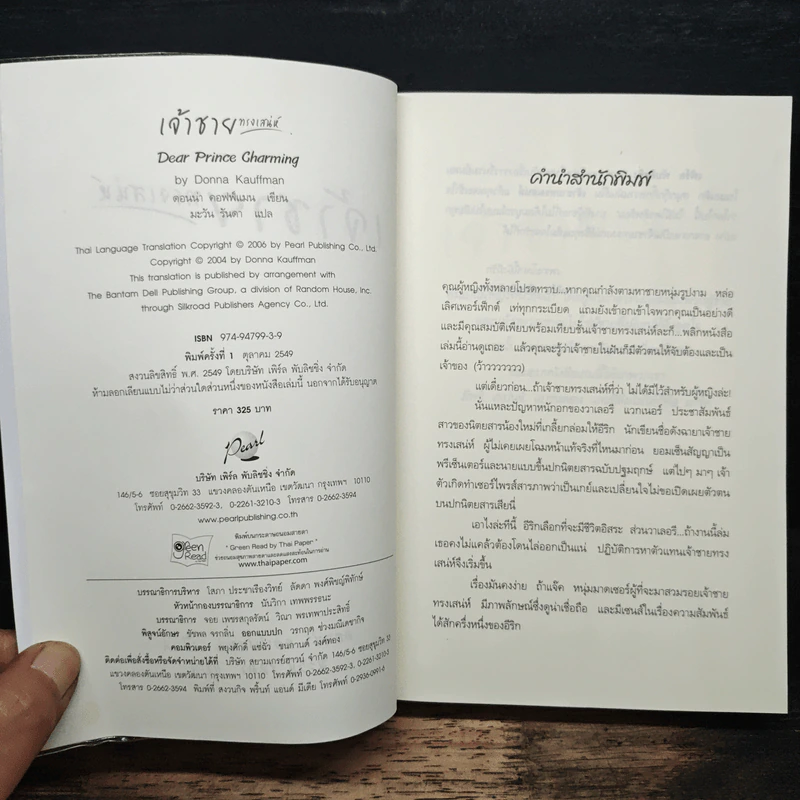 เจ้าชายทรงเสน่ห์
Dear Prince Charming
by Donna Kauffman
ดอนน่า คอฟฟ์แมน เขียน
มะวัน วันดา แปล
Thai Language Translation Copyright © 2006 by Pearl Publishing Co., Ltd.
Copyright © 2004 by Donna Kauffman
This translation is published by arrangement with
The Bantam Dell Publishing Group, a division of Random House, Inc.
through Silkroad Publishers Agency Co., Ltd.
ISBN 974-94799-3-9
พิมพ์ครั้งที่ 1 ตุลาคม 2549
สงวนลิขสิทธิ์ พ.ศ. 2549 โดยบริษัท เพิร์ล พับลิชชิ่ง จำกัด
ห้ามลอกเลียนแบบไม่ว่าส่วนใดส่วนหนึ่งของหนังสือเล่มนี้ นอกจากได้รับอนุญาต
ราคา 325 บาท
Pearl
บริษัท เพิร์ล พับลิชชิ่ง จำกัด
146/5-6 ซอยสุขุมวิท 33 แขวงคลองตันเหนือ เขตวัฒนา กรุงเทพฯ 10110
โทรศัพท์ 0-2662-3592-3, 0-2261-3210-3 โทรสาร 0-2662-3594
www.pearlpublishing.co.th
green Read
พิมพ์บนกระดาษถนอมสายตา
"Green Read by Thai Paper"
www.thaipaper.com
บรรณาธิการบริหาร โสภา ประชาเรืองวิทย์ ลัดดา พงศ์พิชญ์พิทักษ์
หัวหน้ากองบรรณาธิการ นับวิกา เทพพรรธนะ
บรรณาธิการ จอย เพชรสกุลรัตน์ วิณา พรเทพาประสิทธิ์
พิสูจน์อักษร ชัชพล จรกลิ่น ออกแบบปก วรกฤต ช่วงมณีเดชากิจ
คอมพิวเตอร์ พยุงศักดิ์ แซ่ฉั่ว ชนกานต์ วงศ์ทอง
ติดต่อเพื่อสั่งซื้อหรือจัดจำหน่ายได้ที่ บริษัท สยามเกรย์ฮาวน์ จำกัด 146/5-6 ซอยสุขุมวิท 33
แขวงคลองตันเหนือ เขตวัฒนา กรุงเทพฯ 10110 โทรศัพท์ 0-2662-3592-3, 0-2261-3210-3
โทรสาร 0-2662-3594 พิมพ์ที่ สงวนกิจ พริ้นท์ แอนด์ มีเดีย โทรศัพท์ 0-2936-0991-6
คำนำสำนักพิมพ์
คุณผู้หญิงทั้งหลายโปรดทราบ...หากคุณกำลังตามหาชายหนุ่มรูปงาม หล่อ
เลิศเพอร์เฟ็กต์ เท่ทุกกระเบียด แถมยังเข้าอกเข้าใจพวกคุณเป็นอย่างดี
และมีคุณสมบัติเพียบพร้อมเทียบชั้นเจ้าชายทรงเสน่ห์ละก็...พลิกหนังสือ
เล่มนี้อ่านดูเถอะ แล้วคุณจะรู้ว่าเจ้าชายในฝันก็มีตัวตนให้จับต้องและเป็น
เจ้าของ (ว้าววววววว)
แต่เดี๋ยวก่อน...ถ้าเจ้าชายทรงเสน่ห์ที่ว่า ไม่ได้มีไว้สำหรับผู้หญิงล่ะ!
นั่นแหละปัญหาหนักอกของวาเลอรี แวกเนอร์ ประชาสัมพันธ์
สาวของนิตยสารน้องใหม่ที่เกลี้ยกล่อมให้อีริก นักเขียนชื่อดังฉายาเจ้าชาย
ทรงเสน่ห์ ผู้ไม่เคยเผยโฉมหน้าแท้จริงที่ไหนมาก่อน ยอมเซ็นสัญญาเป็น
พรีเซ็นเตอร์และนายแบบขึ้นปกนิตยสารฉบับปฐมฤกษ์ แต่ไปๆ มาๆ เจ้า
ตัวเกิดทำเซอร์ไพรส์สารภาพว่าเป็นเกย์และเปลี่ยนใจไม่ขอเปิดเผยตัวตน
บนปกนิตยสารเสียนี่
เอาไงล่ะทีนี้ อีริกเลือกที่จะมีชีวิตอิสระ ส่วนวาเลอรี...ถ้างานนี้ล่ม
เธอคงไม่แคล้วต้องโดนไล่ออกเป็นแน่ ปฏิบัติการหาตัวแทนเจ้าชายทรง
เสน่ห์จึงเริ่มขึ้น
เรื่องมันคงง่าย ถ้าแจ็ค หนุ่มมาดเซอร์ผู้ที่จะมาสวมรอยเจ้าชาย
ทรงเสน่ห์ มีภาพลักษณ์ซึ่งดูน่าเชื่อถือ และมีเซนส์ในเรื่องความสัมพันธ์
ได้สักครึ่งหนึ่งของอีริก